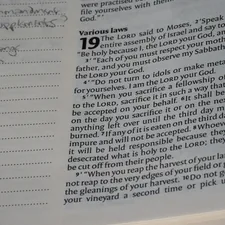 were practised
file yourselves with them.
God."'
Various laws
19 The LORD said to Moses, 2'Speak
entire assembly of Israel and say to
"Be holy because I, the LORD your God, am
3'"Each of you must respect your mother
father, and you must observe my Sabbath
the LORD your God.
4'"Do not turn to idols or make metal
for yourselves. I am the LORD your God.
5'"When you sacrifice a fellowship
to the LORD, sacrifice it in such a way that
be accepted on your behalf. 6It shall be
on the day you sacrifice it or on the
anything left over until the third day m
burned. 7If any of it is eaten on the third d
impure and will not be accepted. 8Whoev
it will be held responsible because they
desecrated what is holy to the LORD; they
be cut off from their people.
9'"When you reap the harvest of your la
not reap to the very edges of your field or
the gleanings of your harvest. 10Do not g
your vineyard a second time or pick u